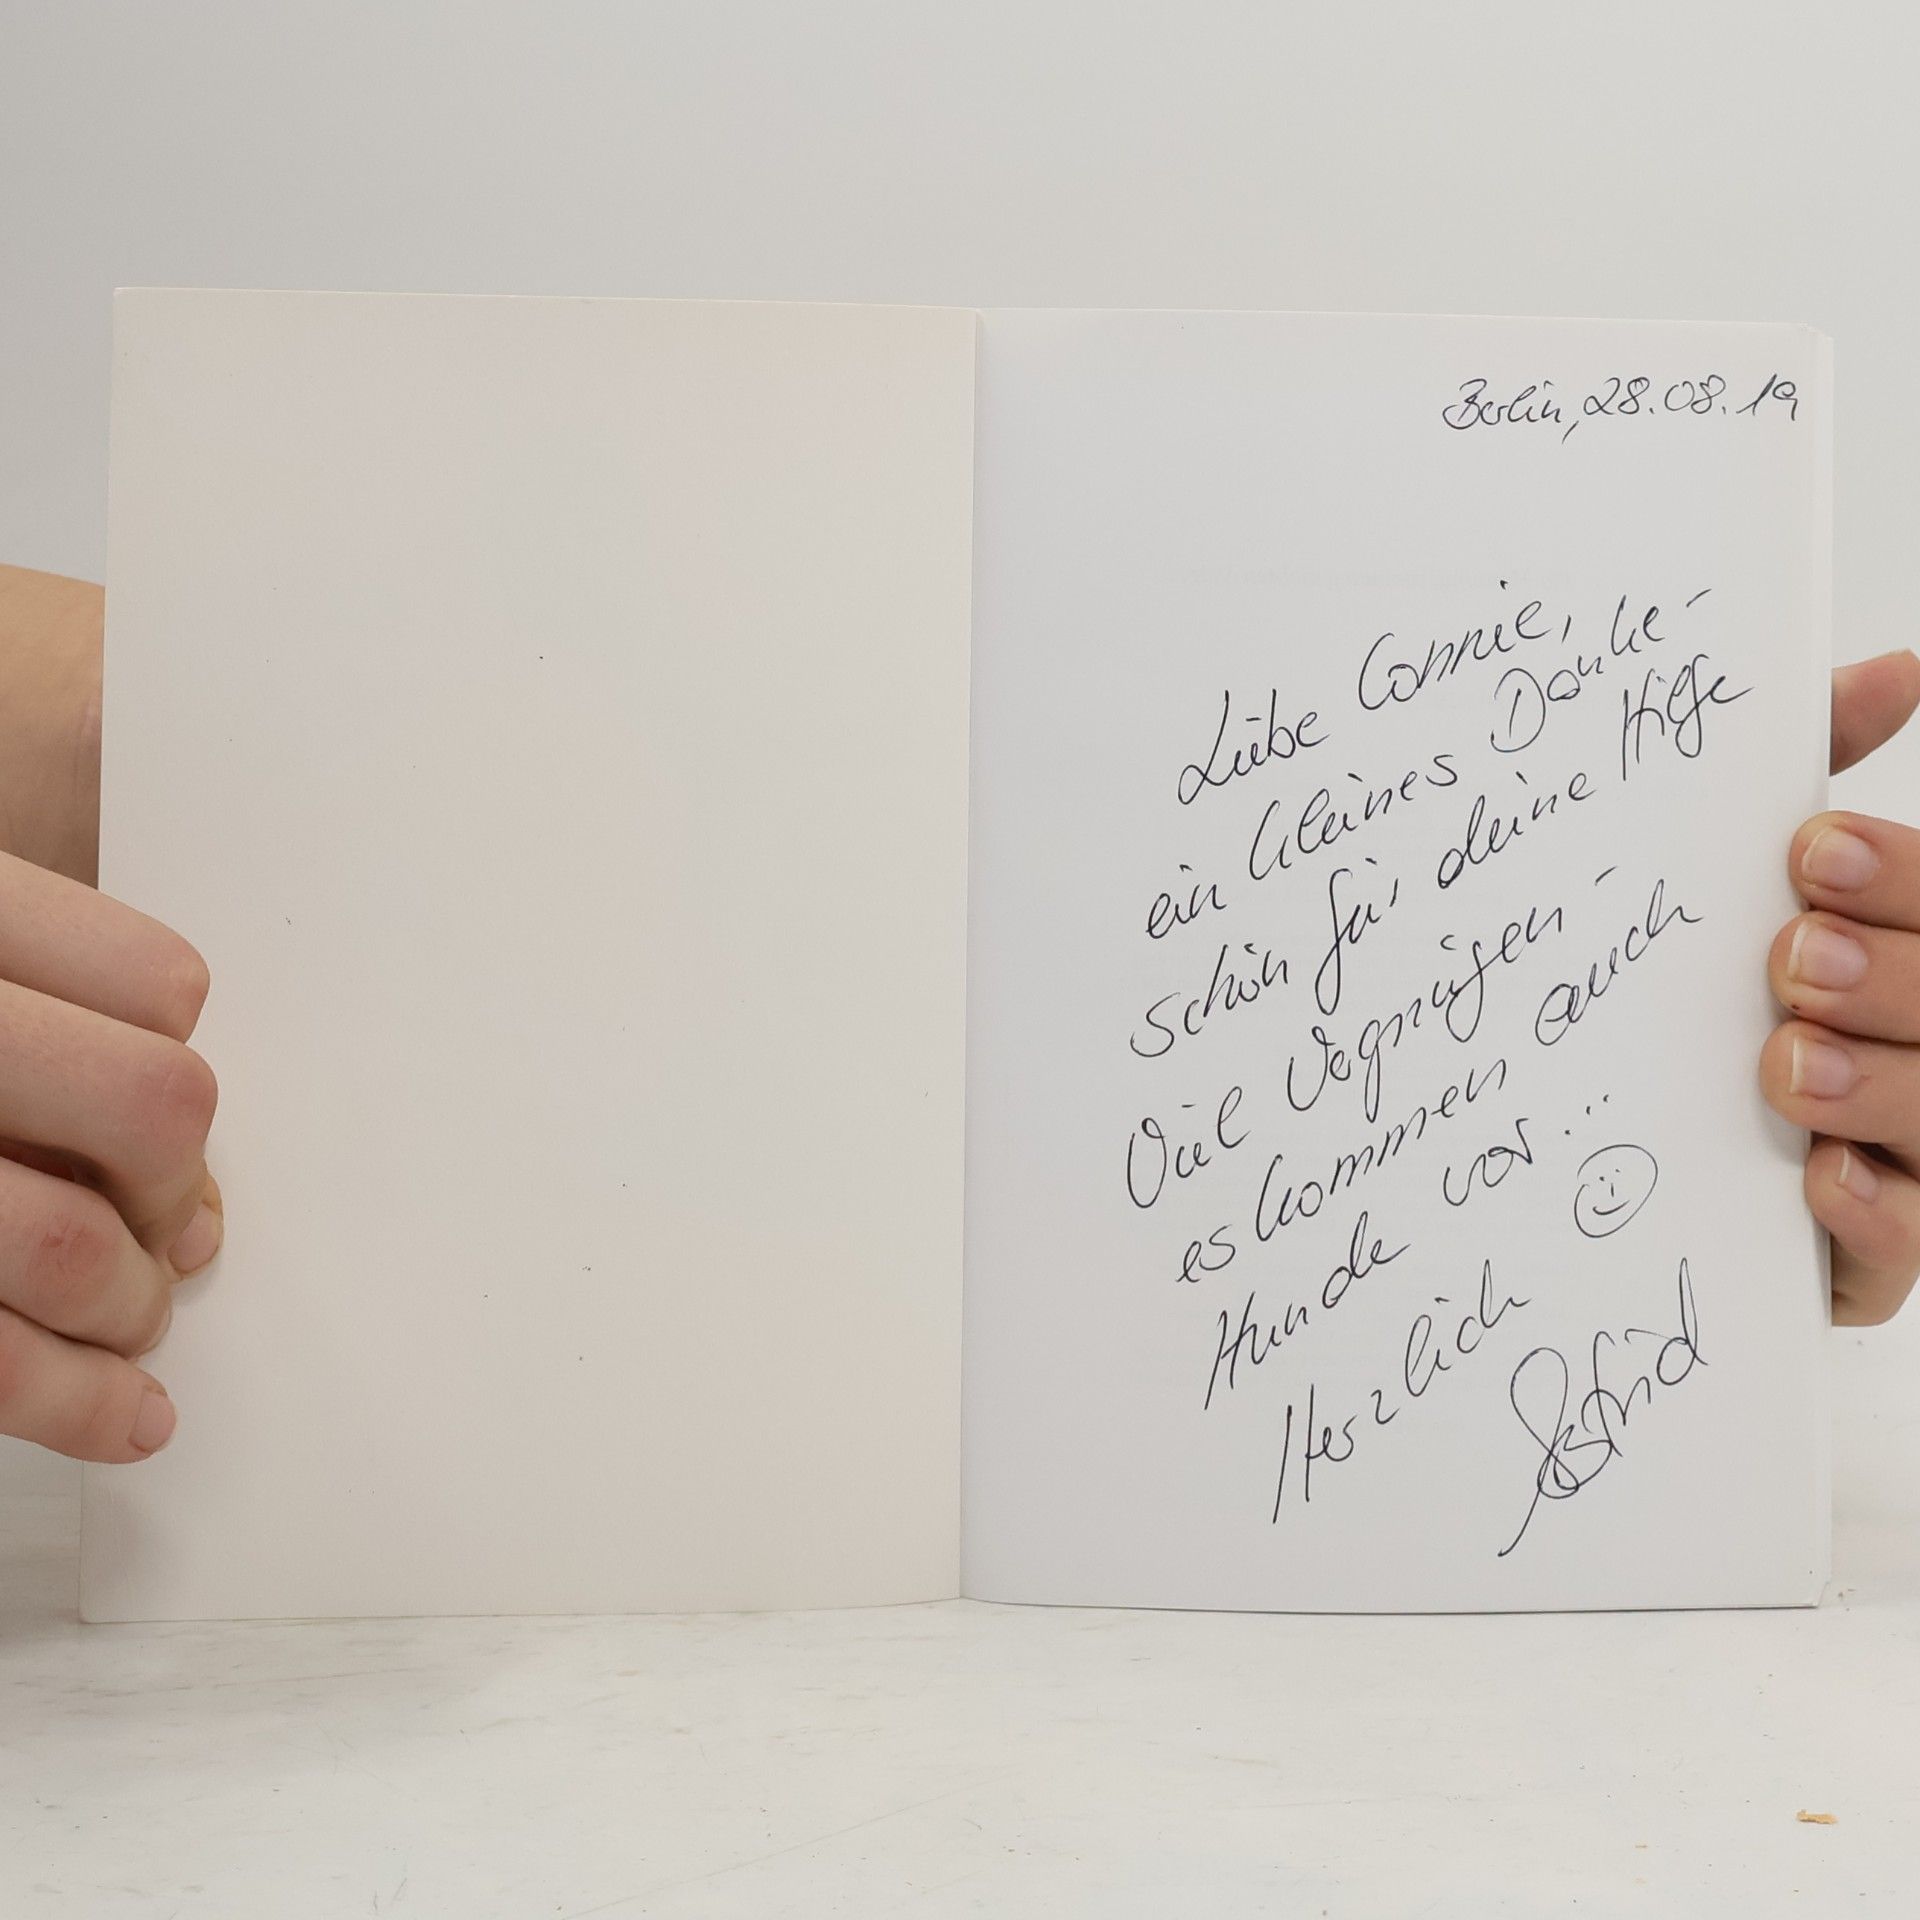 Berlin, 28.08.19
Liebe Connie,
ein kleines Danke-
schön für deine Hilfe
Viel Vergnügen -
es kommen auch
Hunde vor...
Herzlich
Astrid